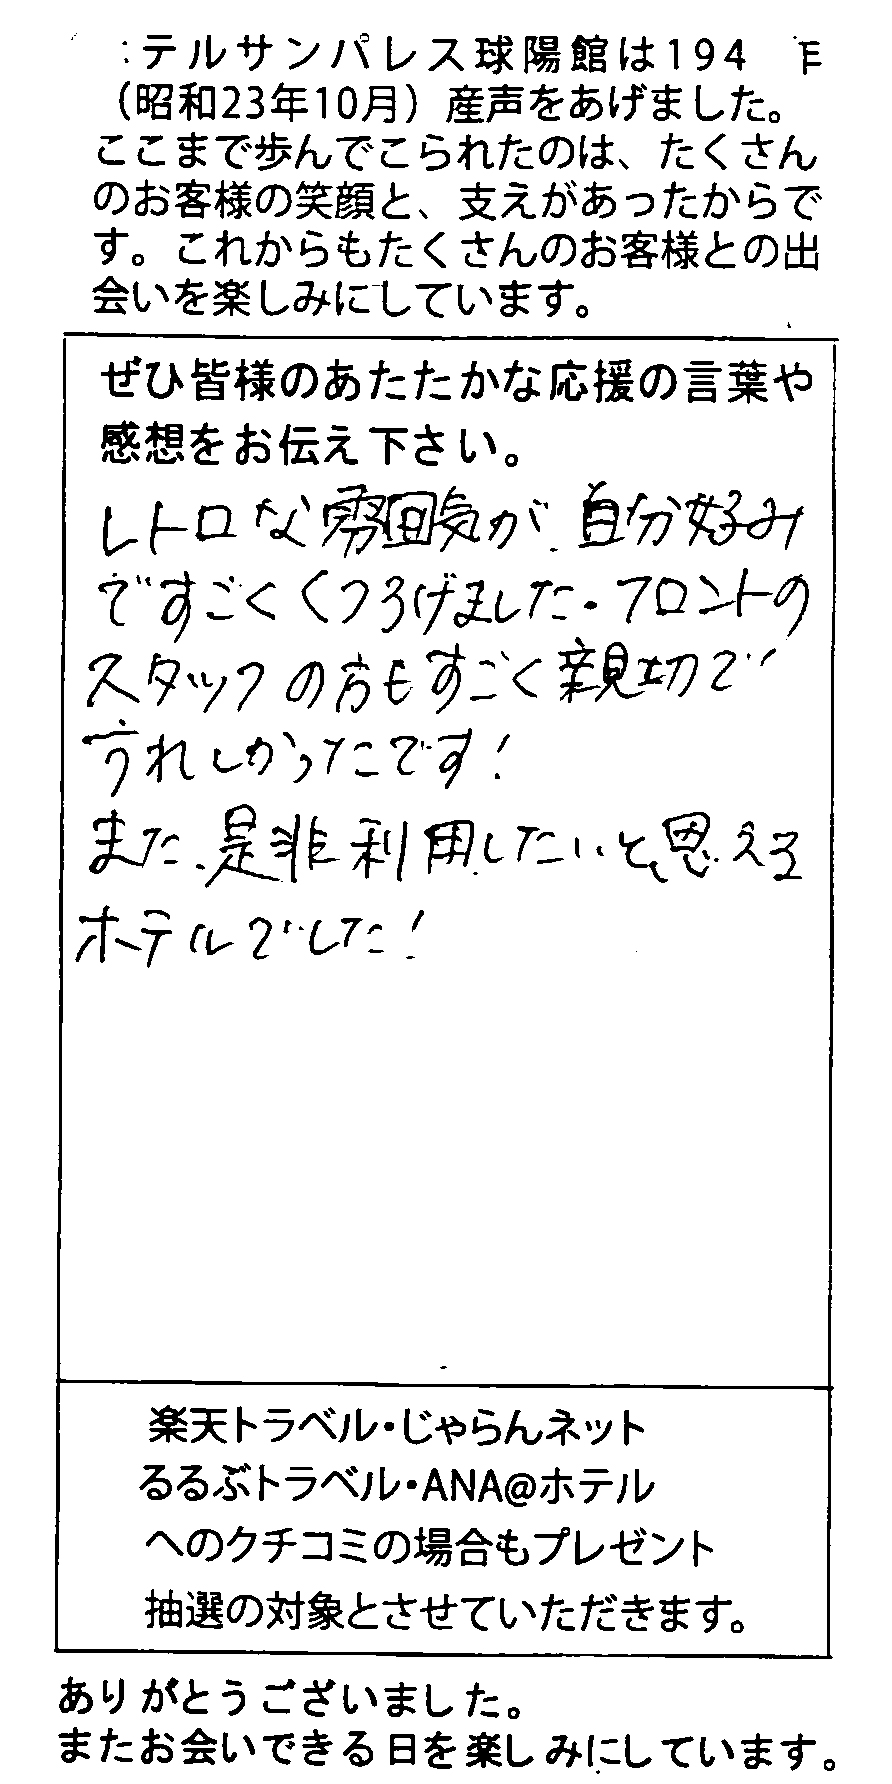 テルサンパレス球陽館は194
（昭和23年10月）産声をあげました。
ここまで歩んでこられたのは、たくさん
のお客様の笑顔と、支えがあったからで
す。これからもたくさんのお客様との出
会いを楽しみにしています。
ぜひ皆様のあたたかな応援の言葉や
感想をお伝え下さい。
レトロな雰囲気が、自分好み
ですごくくつろげました。フロントの
スタッフの方もすごく親切で
うれしかったです！
また、是非利用したいと思える
ホテルでした！
楽天トラベル・じゃらんネット
るるぶトラベル・ANA@ホテル
へのクチコミの場合もプレゼント
抽選の対象とさせていただきます。
ありがとうございました。
またお会いできる日を楽しみにしています。